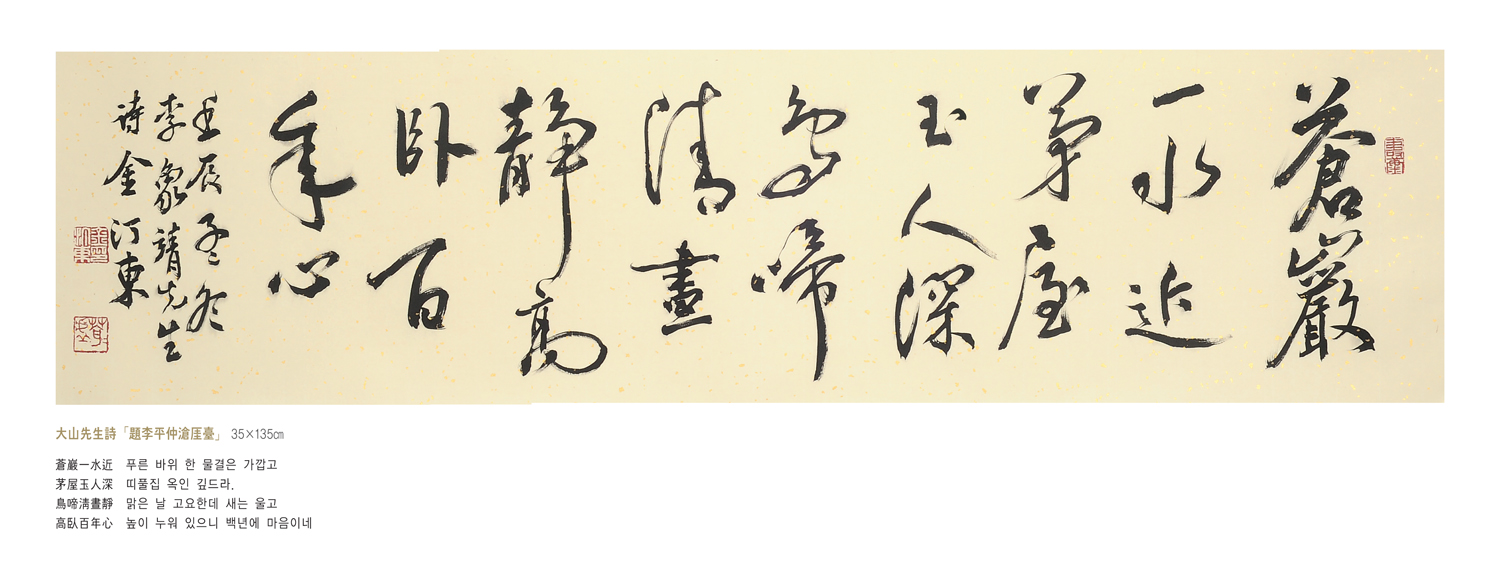 蒼巖
一水近
茅屋
玉人深
鳥啼
清晝
靜高
臥百
年心
壬辰孟冬
李象靖先生
诗金江東
大山先生詩「題李平仲滄厓臺」 35×135㎝
蒼巖一水近 푸른 바위 한 물결은 가깝고
茅屋玉人深 띠풀집 옥인 깊드라.
鳥啼淸晝靜 맑은 날 고요한데 새는 울고
高臥百年心 높이 누워 있으니 백년에 마음이네